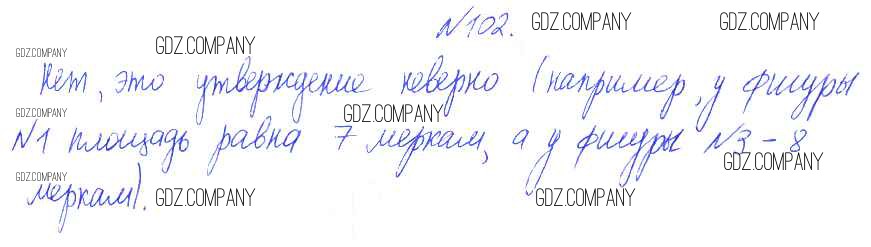 №102. GDZ.COMPANY GDZ.COMPANY
GDZ.COMPANY GDZ.COMPANY
Нет, это утверждение неверно (например, у фигуры
GDZ.COMPANY GDZ.COMPANY
№1 площадь равна 7 меркам, а у фигуры №3 - 8
GDZ.COMPANY
GDZ.COMPANY
меркам). GDZ.COMPANY GDZ.COMPANY